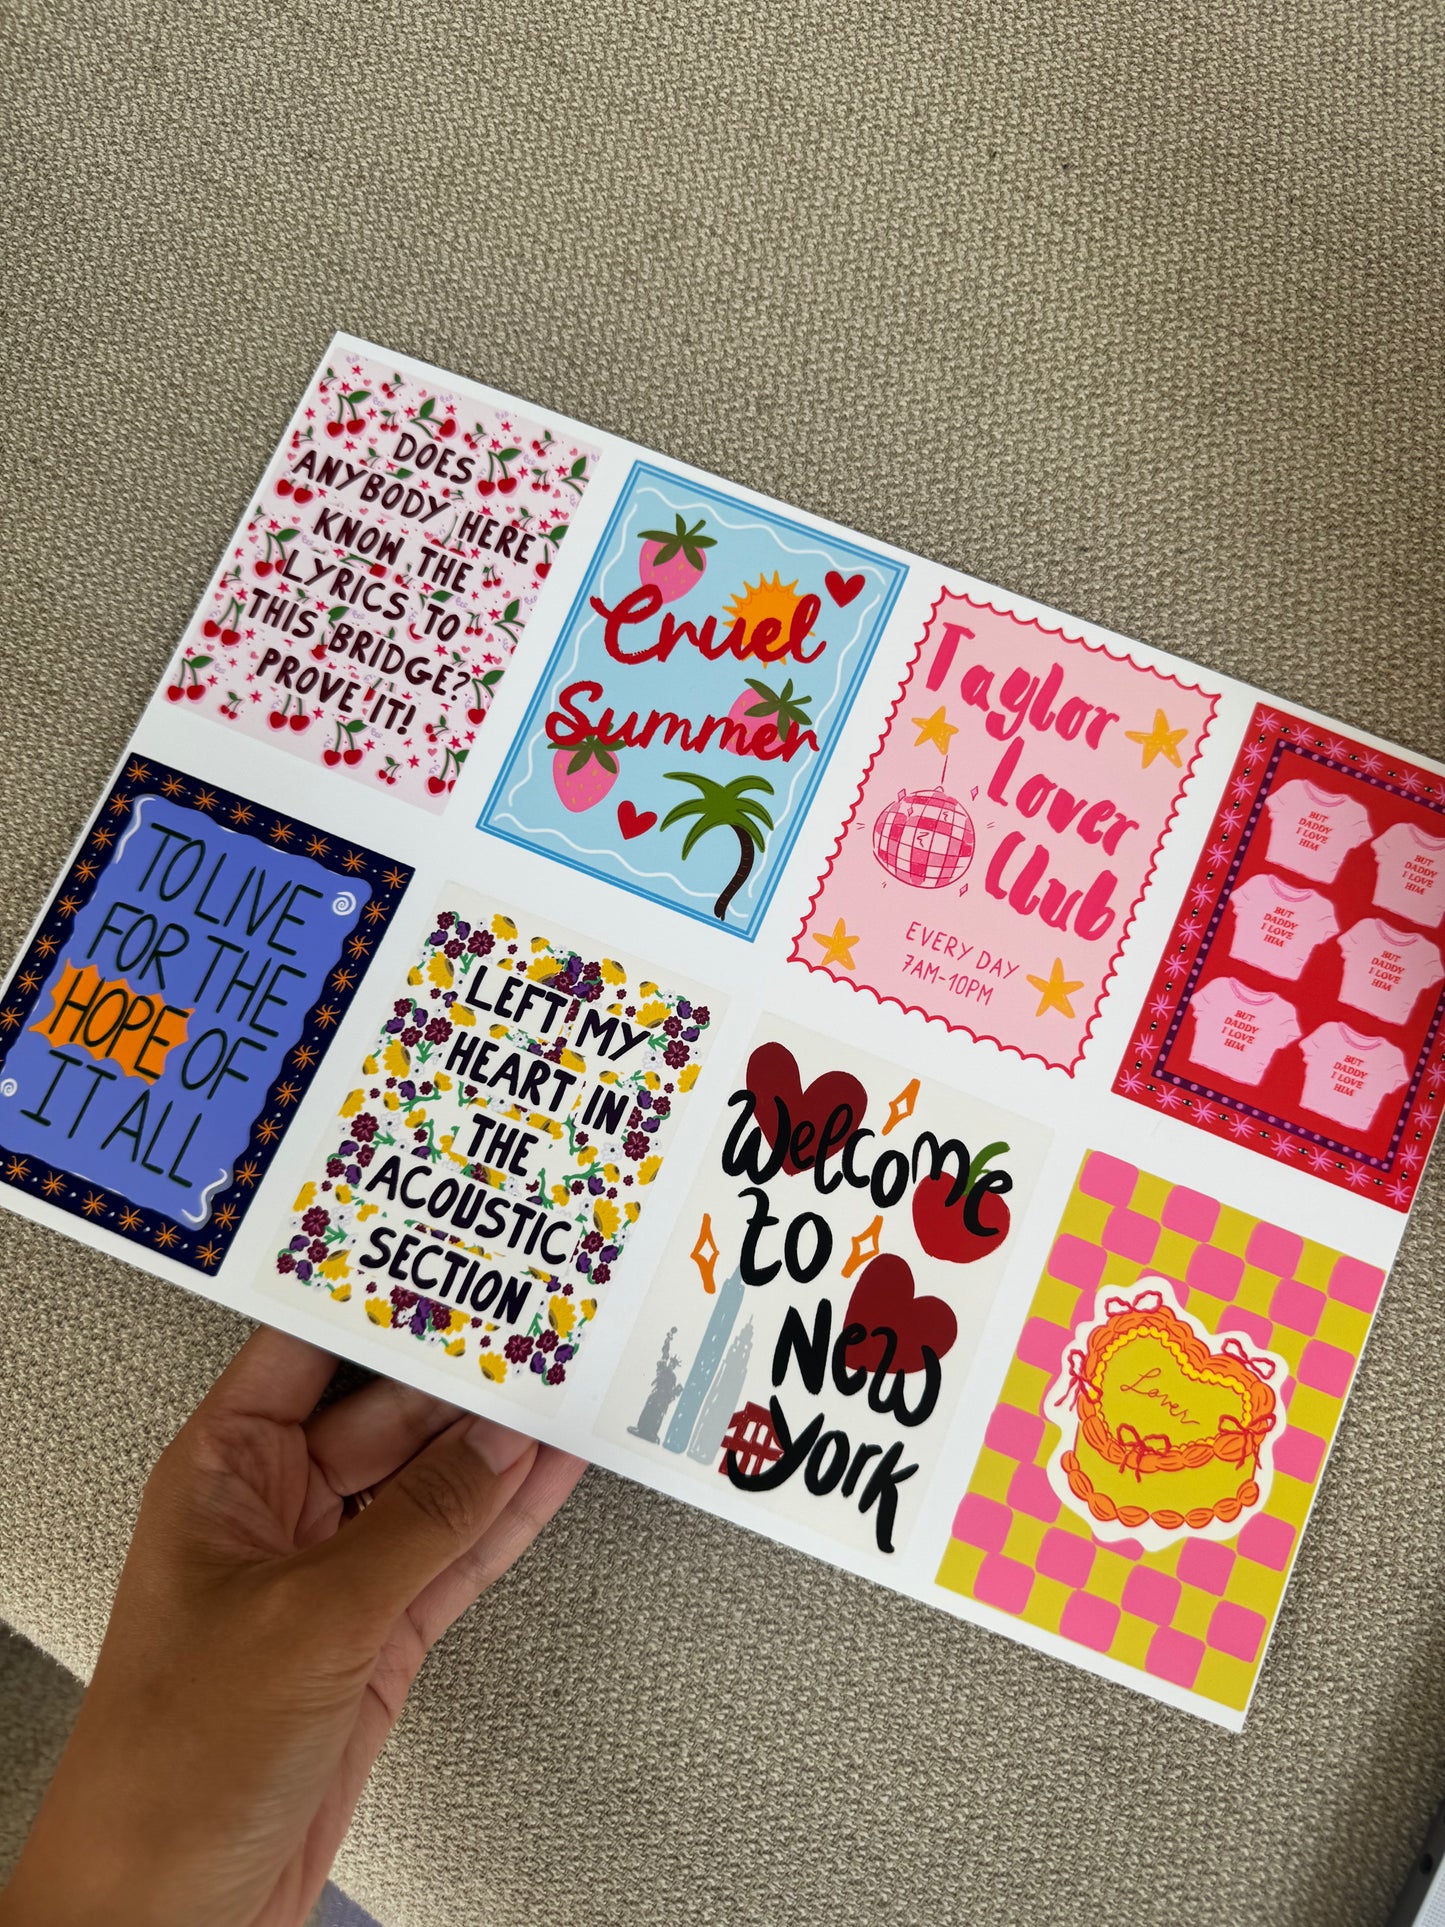 DOES
ANYBODY HERE
KNOW THE
LYRICS TO
THIS BRIDGE?
PROVE IT!
Cruel
Summer
Taylor
Lover
Club
EVERY DAY
7AM-10PM
BUT
DADDY
I LOVE
HIM
BUT
DADDY
I LOVE
HIM
BUT
DADDY
I LOVE
HIM
BUT
DADDY
I LOVE
HIM
BUT
DADDY
I LOVE
HIM
BUT
DADDY
I LOVE
HIM
TO LIVE
FOR THE
HOPE OF
IT ALL
LEFT MY
HEART IN
THE
ACOUSTIC
SECTION
Welcome
to
New
York
Lover